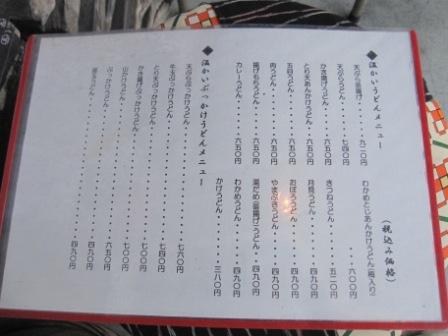 ◆温かいうどんメニュー (税込み価格)
天ぷら釜揚げ・・・・九二〇円
天ぷらうどん・・・・・七四〇円
かき揚げうどん・・・・六五〇円
とり天あんかけうどん・・六五〇円
五目うどん・・・・・・六五〇円
肉うどん・・・・・・・六五〇円
揚げもちうどん・・・・六五〇円
カレーうどん・・・・・六五〇円
わかめとじあんかけうどん(梅入り)・・・・六〇〇円
きつねうどん・・・・・五二〇円
月見うどん・・・・・・四九〇円
おぼろうどん・・・・・四九〇円
やまぶきうどん・・・・四九〇円
湯だめ(釜揚げ)うどん・・四九〇円
わかめうどん・・・・・四九〇円
かけうどん・・・・・・三八〇円
◆温かいぶっかけうどんメニュー
天ぷらぶっかけうどん・・・・・・七六〇円
牛玉ぶっかけうどん・・・・・・七四〇円
とり天ぶっかけうどん・・・・・・七〇〇円
かき揚げぶっかけうどん・・・・・七〇〇円
山かけうどん・・・・・・・・六五〇円
ぶっかけうどん・・・・・・・四九〇円
うどん・・・・・・・・四九〇円